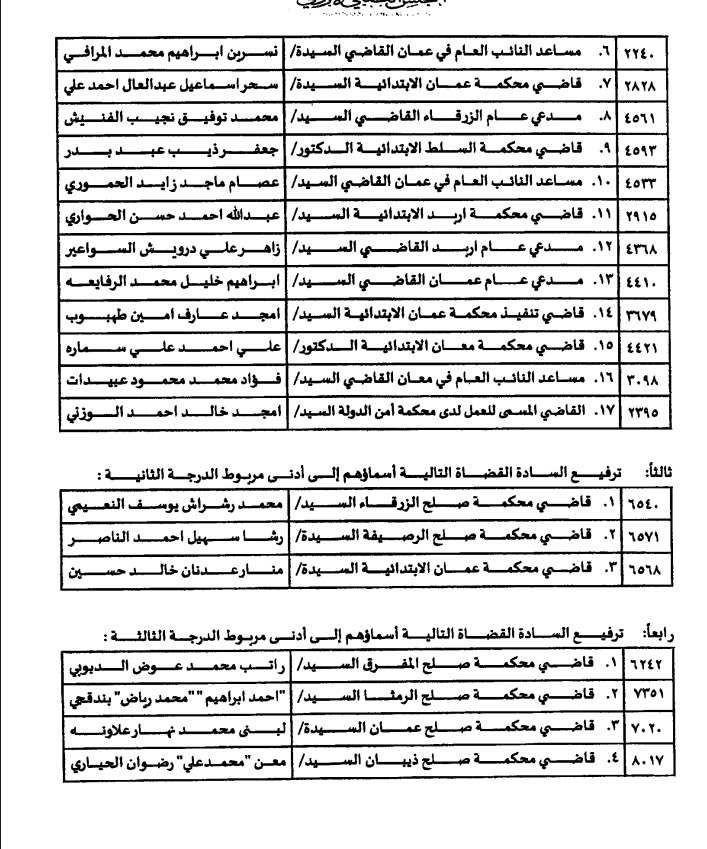 ٢٢٤٠ ٦. مساعد النائب العام في عمان القاضي السيدة/ نسرين ابراهيم محمد المرافي
٢٨٢٨ ٧. قاضي محكمة عمان الابتدائية السيدة/ سحر اسماعيل عبدالعال احمد علي
٤٥٦١ ٨. مدعي عام الزرقاء القاضي السيد/ محمد توفيق نجيب الفنيش
٤٥٩٣ ٩. قاضي محكمة السلط الابتدائية الدكتور/ جعفر ذيب عبد بدر
٤٥٣٣ ١٠. مساعد النائب العام في عمان القاضي السيد/ عصام ماجد زايد الحموري
٢٩١٥ ١١. قاضي محكمة اربد الابتدائية السيد/ عبدالله احمد حسن الحواري
٤٣٦٨ ١٢. مدعي عام اربد القاضي السيد/ زاهر علي درويش السواعير
٤٤١٠ ١٣. مدعي عام عمان القاضي السيد/ ابراهيم خليل محمد الرفايعه
٣٦٧٩ ١٤. قاضي تنفيذ محكمة عمان الابتدائية السيد/ امجد عارف امين طهبوب
٤٤٢١ ١٥. قاضي محكمة معان الابتدائية الدكتور/ علي احمد علي سماره
٣٠٩٨ ١٦. مساعد النائب العام في معان القاضي السيد/ فؤاد محمد محمود عبيدات
٢٣٩٥ ١٧. القاضي المسمى للعمل لدى محكمة أمن الدولة السيد/ امجد خالد احمد الوزني
ثالثاً: ترفيع السادة القضاة التالية أسماؤهم إلى أدنى مربوط الدرجة الثانية :
٦٥٤٠ ١. قاضي محكمة صلح الزرقاء السيد/ محمد رشراش يوسف النعيمي
٦٥٧١ ٢. قاضي محكمة صلح الرصيفة السيدة/ رشا سهيل احمد الناصر
٦٥٦٨ ٣. قاضي محكمة عمان الابتدائية السيدة/ منار عدنان خالد حسين
رابعاً: ترفيع السادة القضاة التالية أسماؤهم إلى أدنى مربوط الدرجة الثالثة :
٦٢٤٢ ١. قاضي محكمة صلح المفرق السيد/ راتب محمد عوض الدبوبي
٧٣٥١ ٢. قاضي محكمة صلح الرمثا السيد/ "احمد ابراهيم" "محمد رياض" بندقجي
٧٠٢٠ ٣. قاضي محكمة صلح عمان السيدة/ لبنى محمد نهار علاونه
٨٠١٧ ٤. قاضي محكمة صلح ذيبان السيد/ معن "محمدعلي" رضوان الحياري